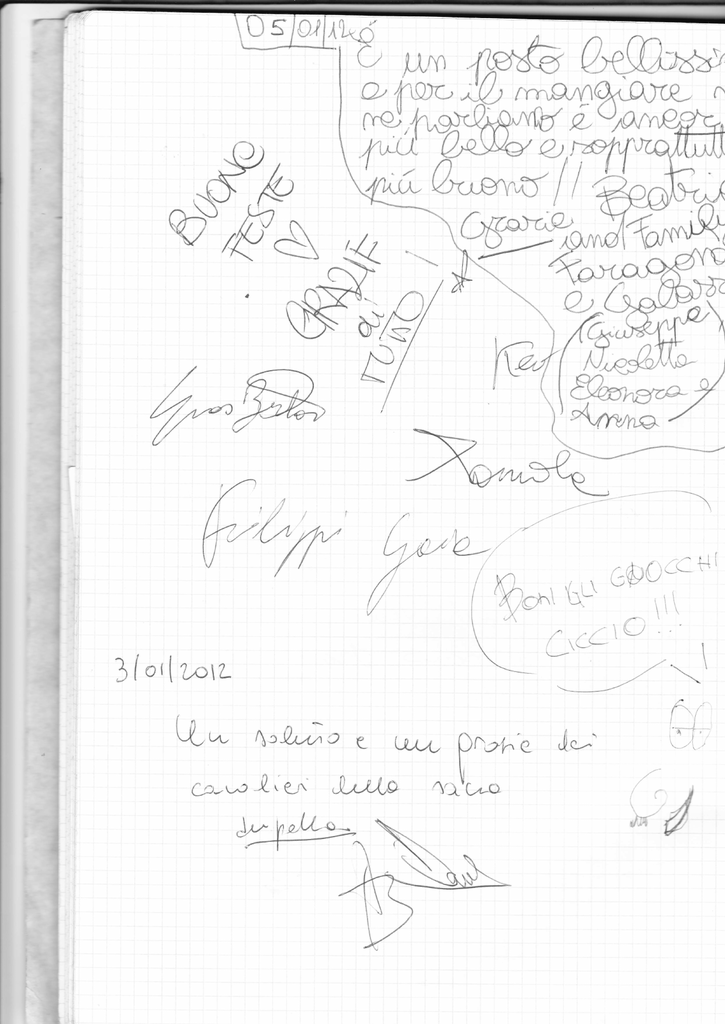 05/01/12
È un posto bellissi
e per il mangiare n
ne parliamo é ancor
piú bello e sopprattutt
piú buono!!
Beatric
Grazie
and Famili
Faragona
(Giuseppe
Nicoletta
Eleonora e
Anna)
BUONE
FESTE
GRAZIE
di
TUTTO
Kev
Filippi
BONI GLI GNOCCHI
CICCIO!!!
3/01/2012
Un saluto e un grazie dei
cavalieri della sacra